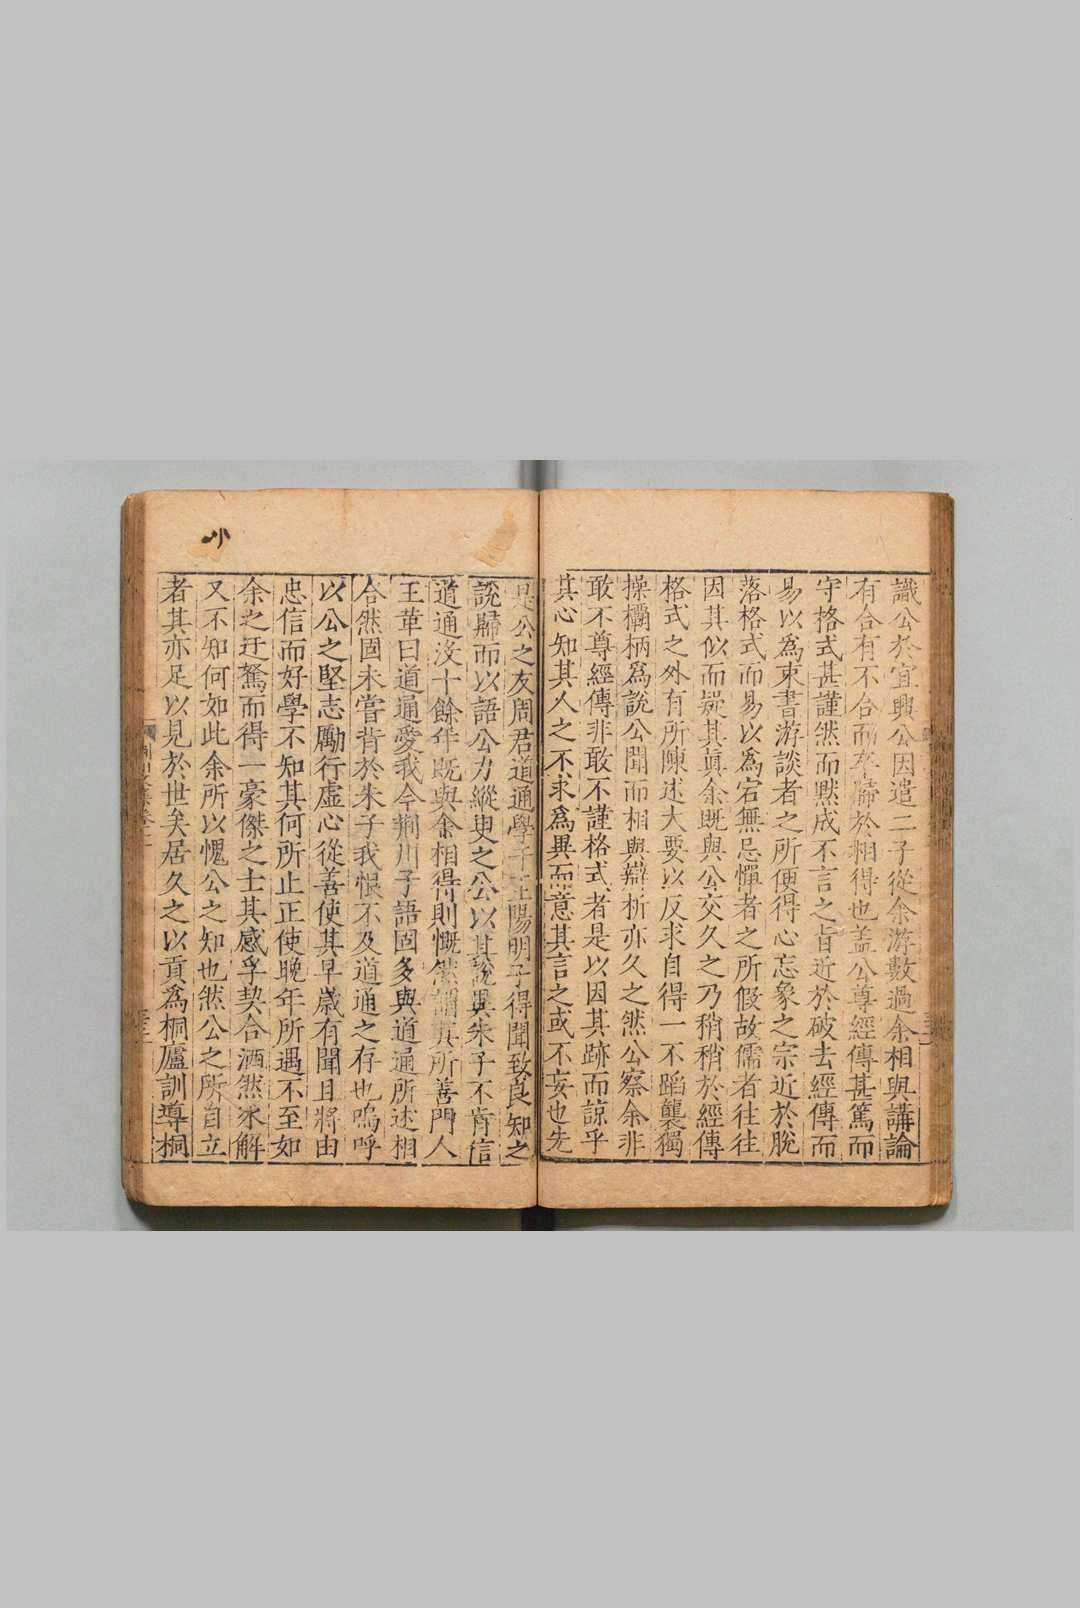 識公於宜興公因遣二子從余游數過余相與講論
有合有不合而卒歸於相得也盖公尊經傳甚篤而
守格式甚謹然而默成不言之旨近於破去經傳而
易以爲束書游談者之所便得心忘象之宗近於脫
落格式而易以爲宕無忌憚者之所假故儒者往往
因其似而疑其眞余既與公交久之乃稍稍於經傳
格式之外有所陳述大要以反求自得一不蹈襲獨
操欛柄爲說公聞而相與辯析亦久之然公察余非
敢不尊經傳非敢不謹格式者是以因其跡而諒乎
其心知其人之不求爲異而意其言之或不妄也先
是公之友周君道通學于王陽明子得聞致良知之
說歸而以語公力縱㬰之公以其說異朱子不肯信
道通沒十餘年既與余相得則慨然誦其所善門人
王革曰道通愛我今荆川子語固多與道通所述相
合然固未嘗背於朱子我恨不及道通之存也嗚呼
以公之堅志勵行虛心從善使其早歲有聞且將由
忠信而好學不知其何所止正使晚年所遇不至如
余之迂駑而得一豪傑之士其感孚契合洒然氷解
又不知何如此余所以愧公之知也然公之所自立
者其亦足以見於世矣居久之以貢爲桐廬訓導桐